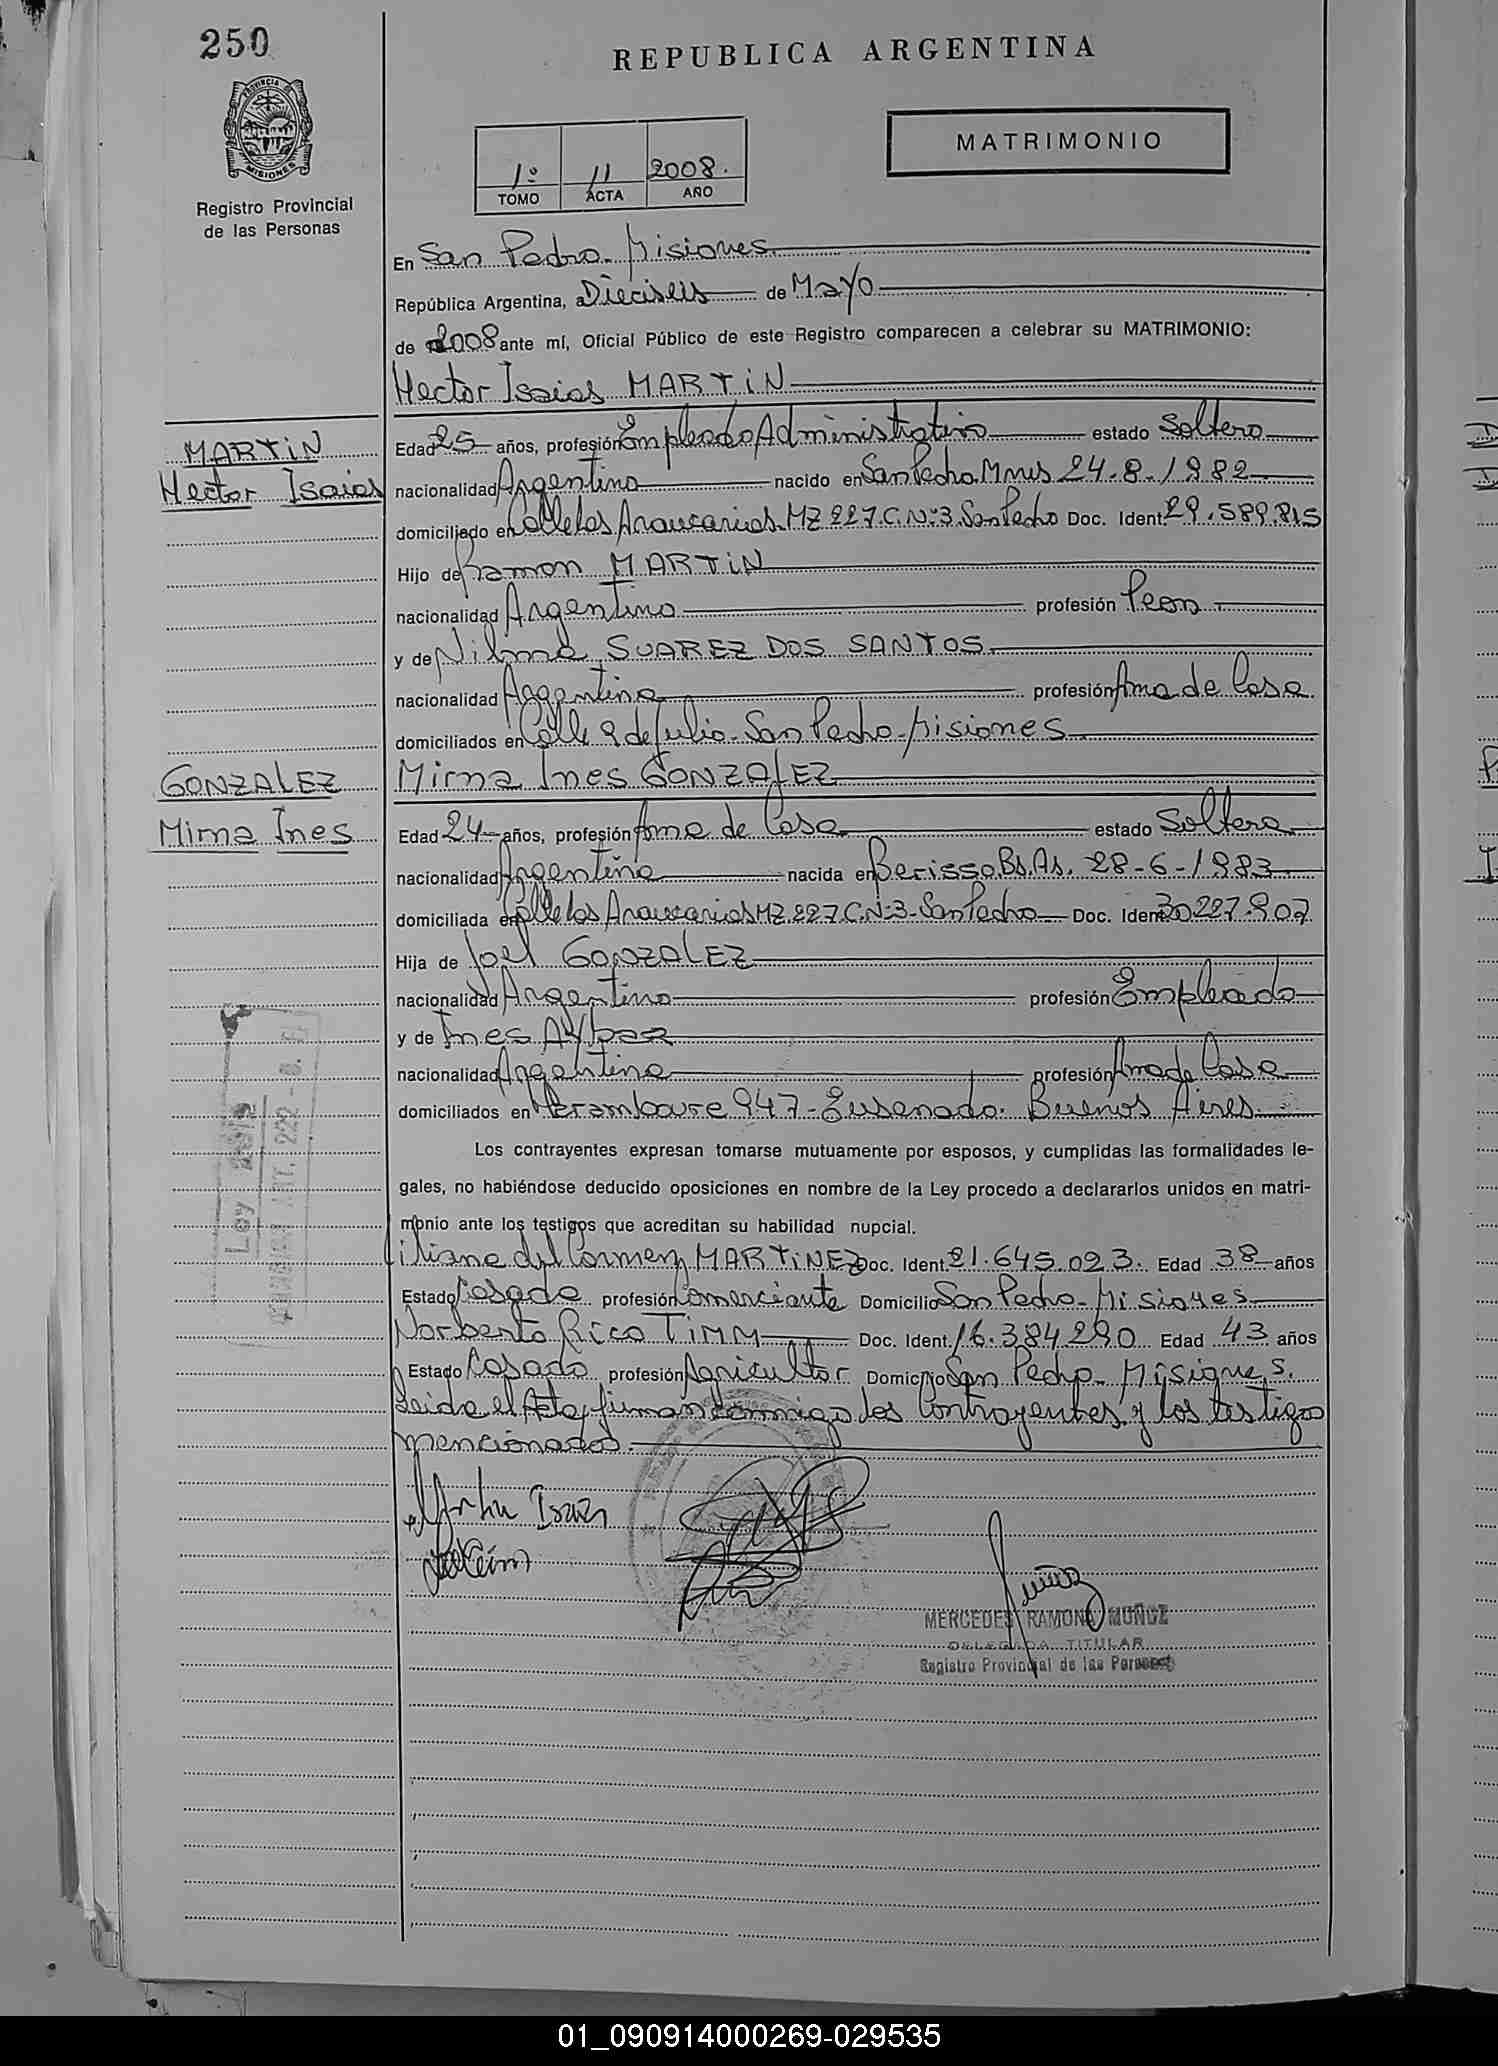 250
REPUBLICA ARGENTINA
PROVINCIA DE
MISIONES
Registro Provincial
de las Personas
MATRIMONIO
1º 11 2008.
TOMO ACTA AÑO
En San Pedro - Misiones
República Argentina, a Dieciseis de Mayo
de 2008 ante mí, Oficial Público de este Registro comparecen a celebrar su MATRIMONIO:
Hector Isaias MARTIN
MARTIN
Hector Isaias
Edad 25 años, profesión Empleado Administrativo estado Soltero
nacionalidad Argentino nacido en San Pedro Mnes 24-8-1982
domiciliado en Calle Los Araucarias MZ 227 C.Nº3. San Pedro Doc. Ident. 29.589.815
Hijo de Ramon MARTIN
nacionalidad Argentino profesión Peon
y de Nilma SUAREZ DOS SANTOS
nacionalidad Argentina profesión Ama de Casa
domiciliados en Calle 9 de Julio - San Pedro - Misiones
GONZALEZ
Mirna Ines
Mirna Ines GONZALEZ
Edad 24 años, profesión Ama de Casa estado Soltera
nacionalidad Argentina nacida en Berisso Bs. As. 28-6-1983
domiciliada en Calle Los Araucarias MZ.227 C.Nº3 - San Pedro Doc. Ident. 30.227.907
Hija de Joel GONZALEZ
nacionalidad Argentino profesión Empleado
y de Ines
nacionalidad Argentina profesión Ama de Casa
domiciliados en 947 - Ensenada. Buenos Aires
Los contrayentes expresan tomarse mutuamente por esposos, y cumplidas las formalidades le-
gales, no habiéndose deducido oposiciones en nombre de la Ley procedo a declararlos unidos en matri-
monio ante los testigos que acreditan su habilidad nupcial.
Liliana del Carmen MARTINEZ Doc. Ident. 21.645.023. Edad 38 años
Estado Casada profesión Comerciante Domicilio San Pedro - Misiones
Norberto Rico TIMM Doc. Ident. 16.384.290 Edad 43 años
Estado Casado profesión Agricultor Domicilio San Pedro - Misiones.
Leida el Acta, firman conmigo los Contrayentes y los testigos
mencionados.
Ley
ART. 222
Isaias
MERCEDES RAMONA MUÑOZ
DELEGADA TITULAR
Registro Provincial de las Personas
01_090914000269-029535